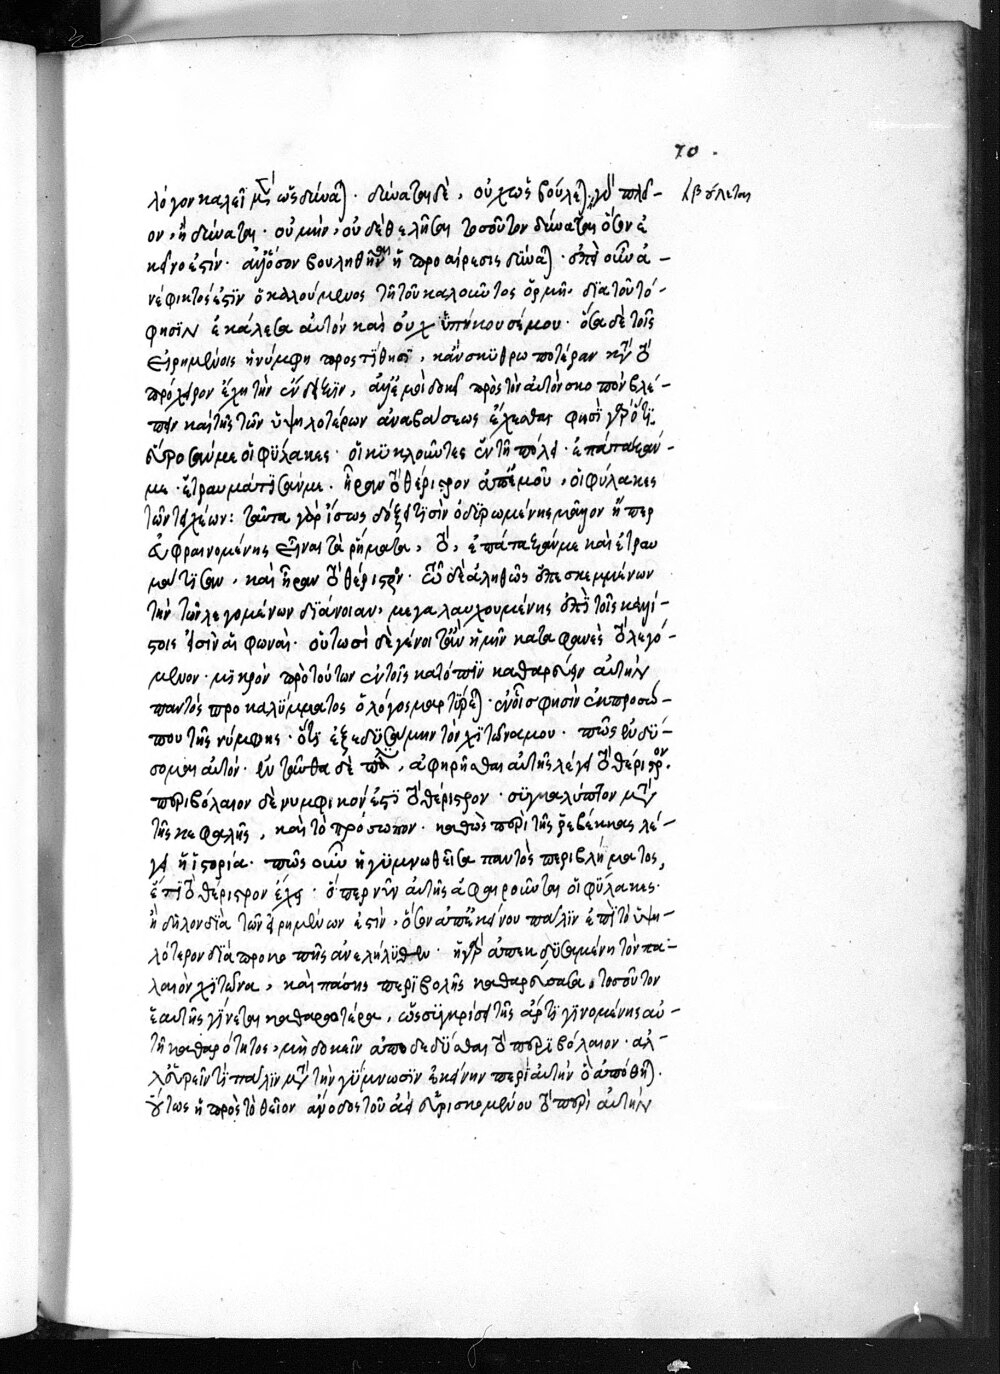 70.
λόγον καλεῖ μὲν ὡς δύναται· δύναται δὲ, οὐχ ὡς βούλεται· βούλεται γὰρ πλέ-
ον, ἢ δύναται· οὐ μὴν, οὐδὲ θελῆσαι τοσοῦτον δύναται ὅσον ἐ
κεῖνο ἐστίν· ἀλλ' ὅσον βουληθῆναι ἡ προαίρεσις δύναται· ἐπεὶ οὖν ἀ-
νέφικτός ἐστιν ὁ καλούμενος τῇ τοῦ καλοῦντος ὁρμῇ· διὰ τοῦτό
φησιν ἐκάλεσα αὐτὸν καὶ οὐχ ὑπήκουσέ μου· ὅσα δὲ τοῖς
εἰρημένοις ἡ νύμφη προστίθησι, κἂν σκυθρωποτέραν κατὰ τὸ
πρόχειρον ἔχῃ τὴν ἔνδειξιν, ἀλλ' ἐμοὶ δοκεῖ πρὸς τὸν αὐτὸν σκοπὸν βλέ-
πειν καὶ τῆς τῶν ὑψηλοτέρων ἀναβάσεως ἔχεσθαι φησὶ γὰρ ὅτι
εὕροσάν με οἱ φύλακες· οἱ κυκλοῦντες ἐν τῇ πόλει· ἐπάταξάν
με· ἐτραυμάτισάν με· ἦραν τὸ θέριστρον ἀπ' ἐμοῦ, οἱ φύλακες
τῶν τειχέων: ταῦτα γὰρ ἴσως δόξει τισὶν ὀδυρωμένης μᾶλλον ἤπερ
εὐφραινομένης εἶναι τὰ ῥήματα, τὸ, ἐπάταξάν με καὶ ἐτραυ
μάτισαν, καὶ ἦραν τὸ θέριστρον· τῷ δὲ ἀληθῶς ἐπεσκεμμένων
τὴν τῶν λεγομένων διάνοιαν, μεγαλαυχουμένης ἐπὶ τοῖς καλλί-
στοις εἰσὶν αἱ φωναὶ· οὑτωσὶ δὲ γένοιτ' ἂν ἡμῖν καταφανὲς τὸ λεγό-
μενον· μικρὸν πρὸ τούτων ἐν τοῖς κατόπιν καθαρεύειν αὐτὴν
παντὸς προκαλύμματος ὁ λόγος μαρτυρεῖται· ἐν οἷς φησὶν ἐκ προσώ-
που τῆς νύμφης· ὅτι ἐξεδυσάμην τὸν χιτῶνα μου· πῶς ἐνδύ-
σομαι αὐτόν· ἐνταῦθα δὲ πάλιν, ἀφῃρῆσθαι αὐτῆς λέγει τὸ θέριστρον·
περιβόλαιον δὲ νυμφικόν ἐστι τὸ θέριστρον· συγκαλύπτον μετὰ
τῆς κεφαλῆς, καὶ τὸ πρόσωπον· καθὼς περὶ τῆς ῥεβέκκας λέ-
γει ἡ ἱστορία· πῶς οὖν ἡ γυμνωθεῖσα παντὸς περιβλήματος,
ἔτι τὸ θέριστρον ἔχει· ὅπερ νῦν αὐτῆς ἀφαιροῦνται οἱ φύλακες·
ἢ δῆλον διὰ τῶν εἰρημένων ἐστὶν, ὅσον ἀπ' ἐκείνου πάλιν ἐπὶ τὸ ὑψη-
λότερον διὰ προκοπῆς ἀνελήλυθεν· ἡ γὰρ ἀπεκδυσαμένη τὸν πα-
λαιὸν χιτῶνα, καὶ πάσης περιβολῆς καθαρεύσασα, τοσοῦτον
ἑαυτῆς γίνεται καθαρωτέρα, ὡς συγκρίσει τῆς ἄρτι γινομένης αὐ-
τῇ καθαρότητος, μὴ δοκεῖν ἀποδεδύσθαι τὸ περιβόλαιον· ἀλ-
λ' εὑρεῖν τι πάλιν μετὰ τὴν γύμνωσιν ἐκείνην περὶ αὐτὴν ὃ ἀπόθηται·
οὕτως ἡ πρὸς τὸ θεῖον ἄνοδος τοῦ ἀεὶ εὑρισκομένου τὸ περὶ αὐτὴν